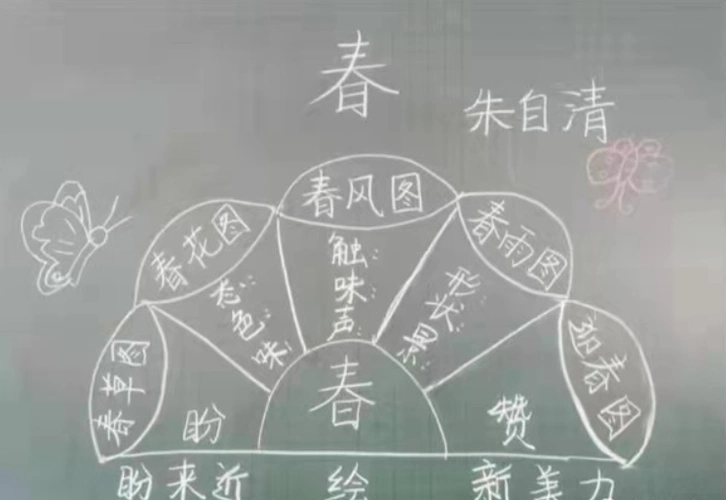 春
朱自清
春风图
春花图
春雨图
春草图
迎春图
触：
味：
声：
态：
色：
味：
形：
状：
景：
盼
春
赞
盼来近
绘
新美力